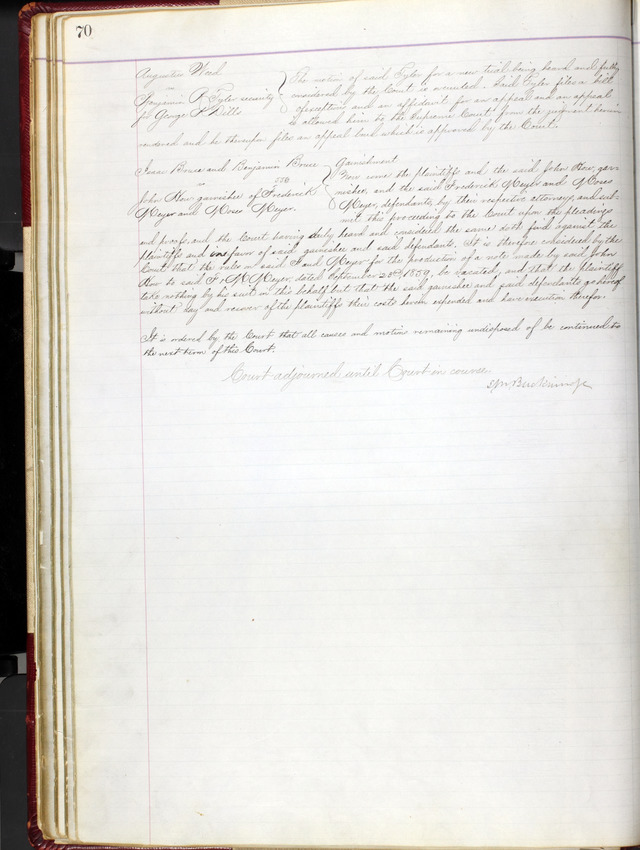 70
Augustus Wood
vs
Benjamin R Tyler security
for George P Dills
The motion of said Tyler for a new trial being heard and fully
considered by the Court is overruled. Said Tyler files a bill
of exceptions and an affidavit for an appeal and an appeal
is allowed him to the Supreme Court from the judgment herein
rendered and he thereupon files an appeal bond which is approved by the Court.
Isaac Bruce and Benjamin Bruce
vs
John How, garnishee of Frederick
Meyer and Moses Meyer.
Garnishment
Now come the plaintiffs and the said John How, gar-
nishee, and the said Frederick Meyer and Moses
Meyer, defendants, by their respective attorneys, and sub-
mit this proceeding to the Court upon the pleadings
and proofs, and the Court having duly heard and considered the same doth find against the
plaintiffs and in favor of said garnishee and said defendants. It is therefore considered by the
Court that the rule on said F and M Meyer for the production of a note made by said John
How to said F & M Meyer, dated September 23rd 1859, be vacated, and that the plaintiffs
take nothing by his suit in this behalf but that the said garnishee and said defendants go hereof
without day and recover of the plaintiffs their costs herein expended and have execution therefor.
It is ordered by the Court that all causes and motions remaining undisposed of be continued to
the next term of this Court.
Court adjourned until Court in course.